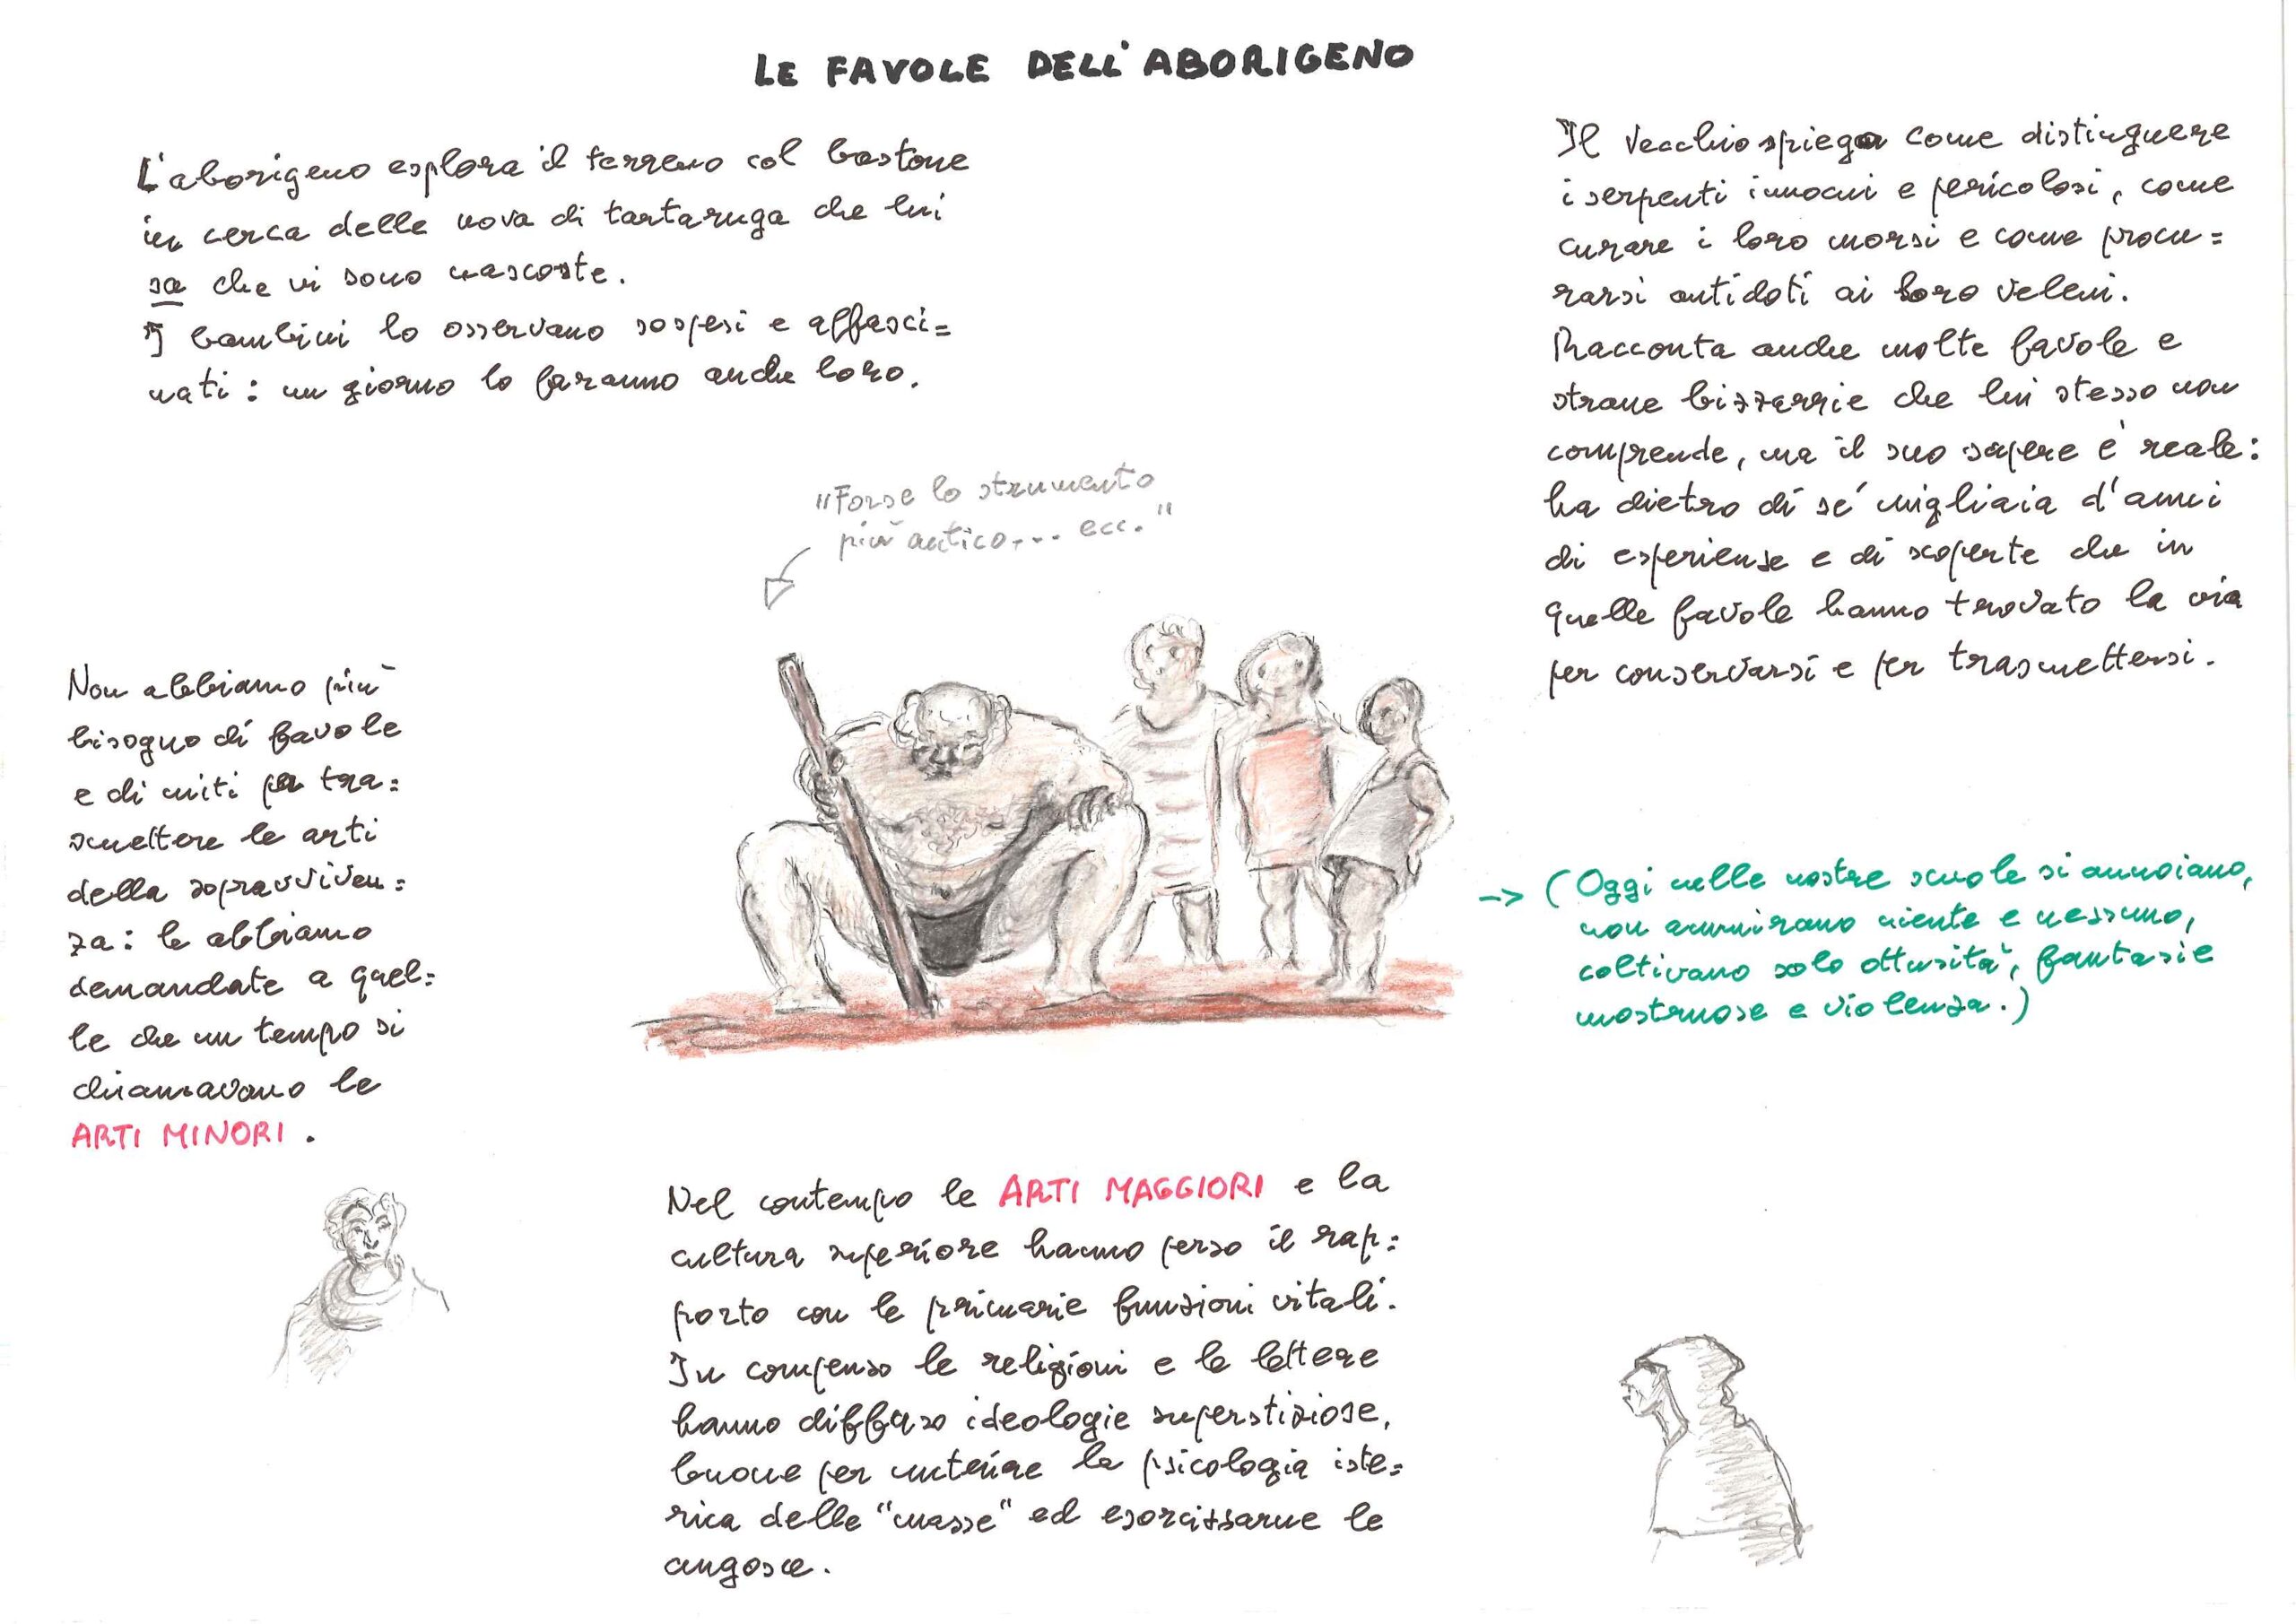 LE FAVOLE DELL'ABORIGENO
L'aborigeno esplora il terreno col bastone
in cerca delle uova di tartaruga che lui
sa che vi sono nascoste.
I bambini lo osservano sospesi e affasci=
nati: un giorno lo faranno anche loro.
Il vecchio spiega come distinguere
i serpenti innocui e pericolosi, come
curare i loro morsi e come procu=
rarsi antidoti ai loro veleni.
Racconta anche molte favole e
strane bizzarrie che lui stesso non
comprende, ma il suo sapere è reale:
ha dietro di sé migliaia d'anni
di esperienze e di scoperte che in
quelle favole hanno trovato la via
per conservarsi e per trasmettersi.
"Forse lo strumento
più antico... ecc."
Non abbiamo più
bisogno di favole
e di miti per tra=
smettere le arti
della sopravviven=
za: le abbiamo
demandate a quel=
le che un tempo si
chiamavano le
ARTI MINORI.
-> (Oggi nelle nostre scuole si annoiano,
non ammirano niente e nessuno,
coltivano solo ottusità, fantasie
mostruose e violenza.)
Nel contempo le ARTI MAGGIORI e la
cultura superiore hanno perso il rap=
porto con le primarie funzioni vitali.
In compenso le religioni e le lettere
hanno diffuso ideologie superstiziose,
buone per nutrire la psicologia iste=
rica delle "masse" ed esorcizzarne le
angosce.